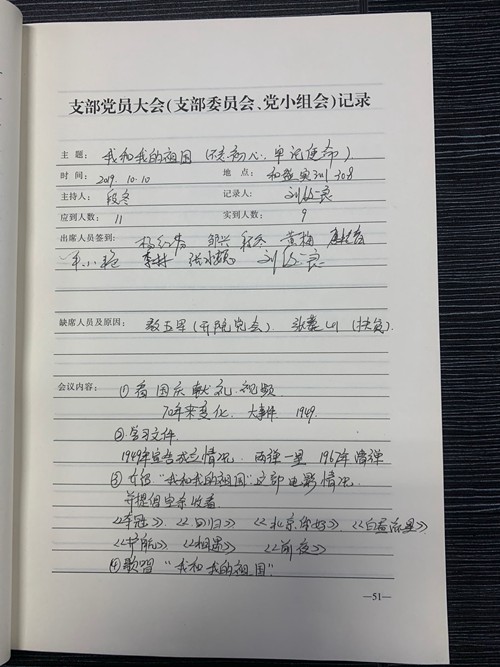 支部党员大会(支部委员会、党小组会)记录
主 题: 我和我的祖国 (不忘初心、牢记使命)
时 间: 2019. 10. 10 地 点: 308
主持人: 段冬 记录人: 刘
应到人数: 11 实到人数: 9
出席人员签到: 杨 邹兴 段冬 黄梅
李林 张 刘
缺席人员及原因: (开院党会) 张 (扶贫)
会议内容: ① 看国庆献礼视频
70年来变化 大事件 1949
② 学习文件
1949年宣告成立情况 两弹一星 1967年 氢弹
③ 介绍"我和我的祖国"这部电影情况
并提倡 去收看
《夺冠》《回归》《北京你好》《白昼流星》
《护航》《相遇》《前夜》
④ 歌唱 "我和我的祖国"
—51—